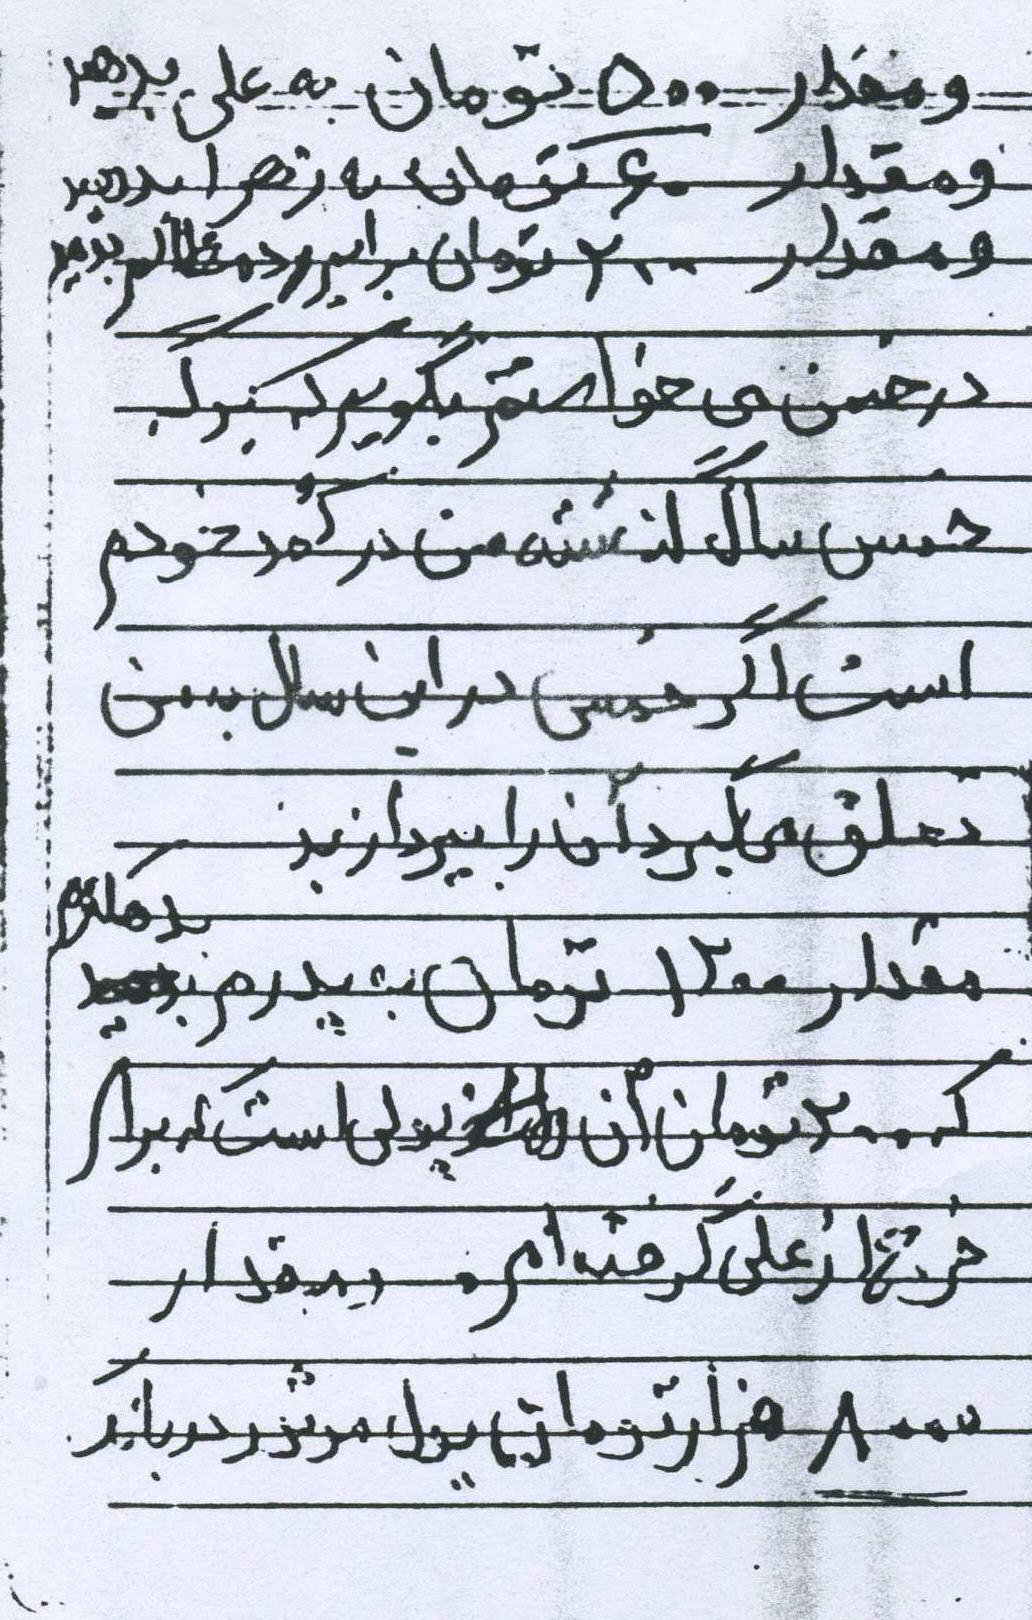 و مقدار ۵۰۰ تومان به علی بدهید
و مقدار ۶۰۰ تومان به زهرا بدهید
و مقدار ۲۰۰۰ تومان برایم رد مظالم بدهید
در ضمن می خواستم بگویم که
خمس سال گذشته من در کمد خودم
است اگر خمسی در این سال به من
تعلق می گیرد آن را بپردازید
مقدار ۱۲۰۰ تومان به پدرم بدهکارم
که ۲۰۰۰ تومان آن پولی است که برای
خرج از علی گرفته ام . و مقدار
۸۰۰۰ هزار تومان پول در بانک